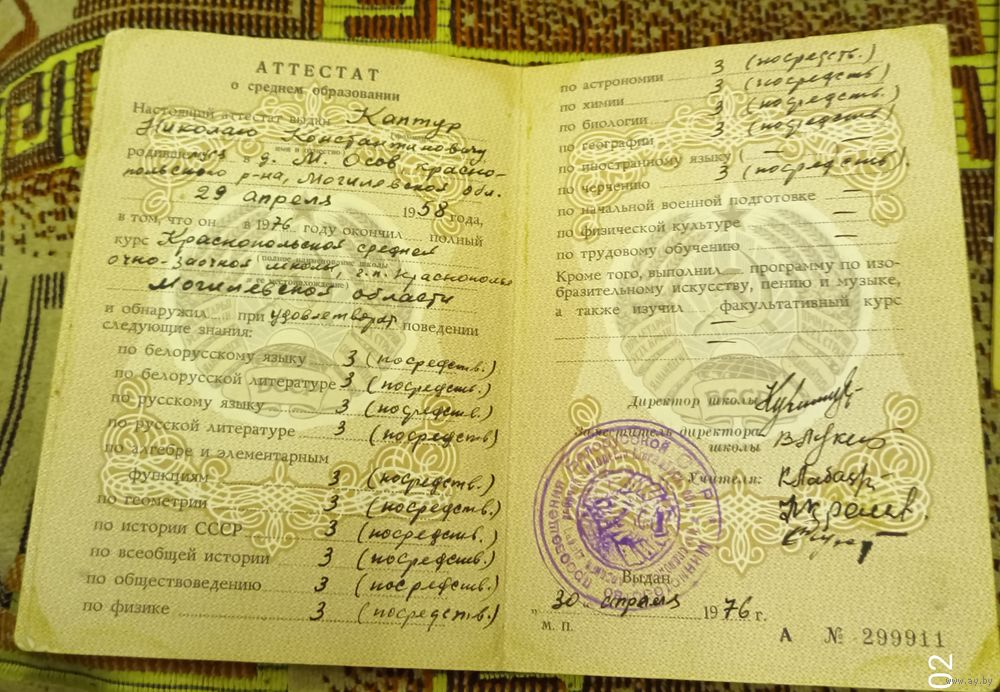 АТТЕСТАТ
о среднем образовании
Настоящий аттестат выдан Каптур
Николаю Константиновичу
родившемуся в д. М. Осов Красно-
польского р-на, Могилевской обл.
29 апреля 1958 года,
в том, что он в 1976 году окончил полный
курс Краснопольской средней
(полное наименование школы
очно-заочной школы, г.п. Краснополье
и ее местонахождение)
Могилевской области
и обнаружил при удовлетворит поведении
следующие знания:
по белорусскому языку 3 (посредств.)
по белорусской литературе 3 (посредств.)
по русскому языку 3 (посредств.)
по русской литературе 3 (посредств)
по алгебре и элементарным
функциям 3 (посредств.)
по геометрии 3 (посредств.)
по истории СССР 3 (посредств.)
по всеобщей истории 3 (посредств.)
по обществоведению 3 (посредств.)
по физике 3 (посредств.)
по астрономии 3 (посредств.)
по химии 3 (посредств)
по биологии 3 (посредств.)
по географии 3 (посредств)
по иностранному языку (—
по черчению 3 (посредств).
по начальной военной подготовке —
по физической культуре —
по трудовому обучению —
Кроме того, выполнил программу по изо-
бразительному искусству, пению и музыке,
а также изучил факультативный курс
—
—
Директор школы
Заместитель директора
школы
Учителя:
Выдан
„30" апреля 1976 г.
М. П.
А № 299911
БССР
www.ay.by
02